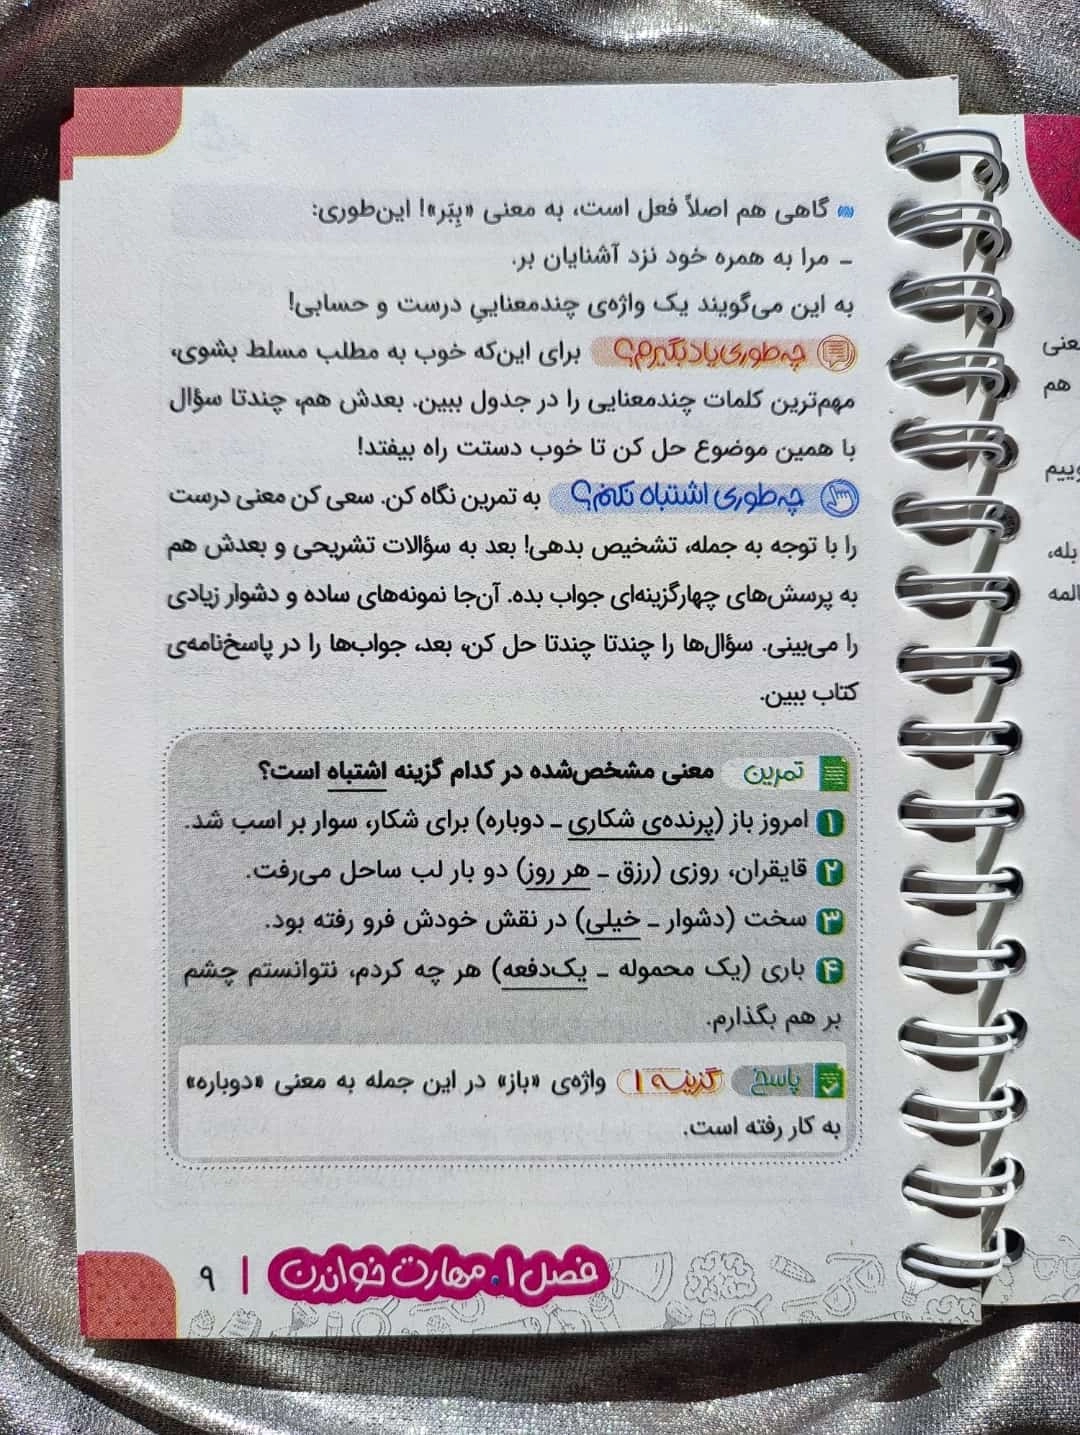 گاهی هم اصلاً فعل است، به معنی «بِبَر»! این‌طوری:
ـ مرا به همره خود نزد آشنایان بر.
به این می‌گویند یک واژه‌ی چندمعناییِ درست و حسابی!
چه‌طوری یاد بگیرم؟ برای این‌که خوب به مطلب مسلط بشوی،
مهم‌ترین کلمات چندمعنایی را در جدول ببین. بعدش هم، چندتا سؤال
با همین موضوع حل کن تا خوب دستت راه بیفتد!
چه‌طوری اشتباه نکنم؟ به تمرین نگاه کن. سعی کن معنی درست
را با توجه به جمله، تشخیص بدهی! بعد به سؤالات تشریحی و بعدش هم
به پرسش‌های چهارگزینه‌ای جواب بده. آن‌جا نمونه‌های ساده و دشوار زیادی
را می‌بینی. سؤال‌ها را چندتا چندتا حل کن، بعد، جواب‌ها را در پاسخ‌نامه‌ی
کتاب ببین.
تمرین معنی مشخص‌شده در کدام گزینه اشتباه است؟
۱ امروز باز (پرنده‌ی شکاری ـ دوباره) برای شکار، سوار بر اسب شد.
۲ قایقران، روزی (رزق ـ هر روز) دو بار لب ساحل می‌رفت.
۳ سخت (دشوار ـ خیلی) در نقش خودش فرو رفته بود.
۴ باری (یک محموله ـ یک‌دفعه) هر چه کردم، نتوانستم چشم
بر هم بگذارم.
پاسخ گزینه ۱ واژه‌ی «باز» در این جمله به معنی «دوباره»
به کار رفته است.
فصل ۱. مهارت خواندن | ۹
معنی
هم
بله،